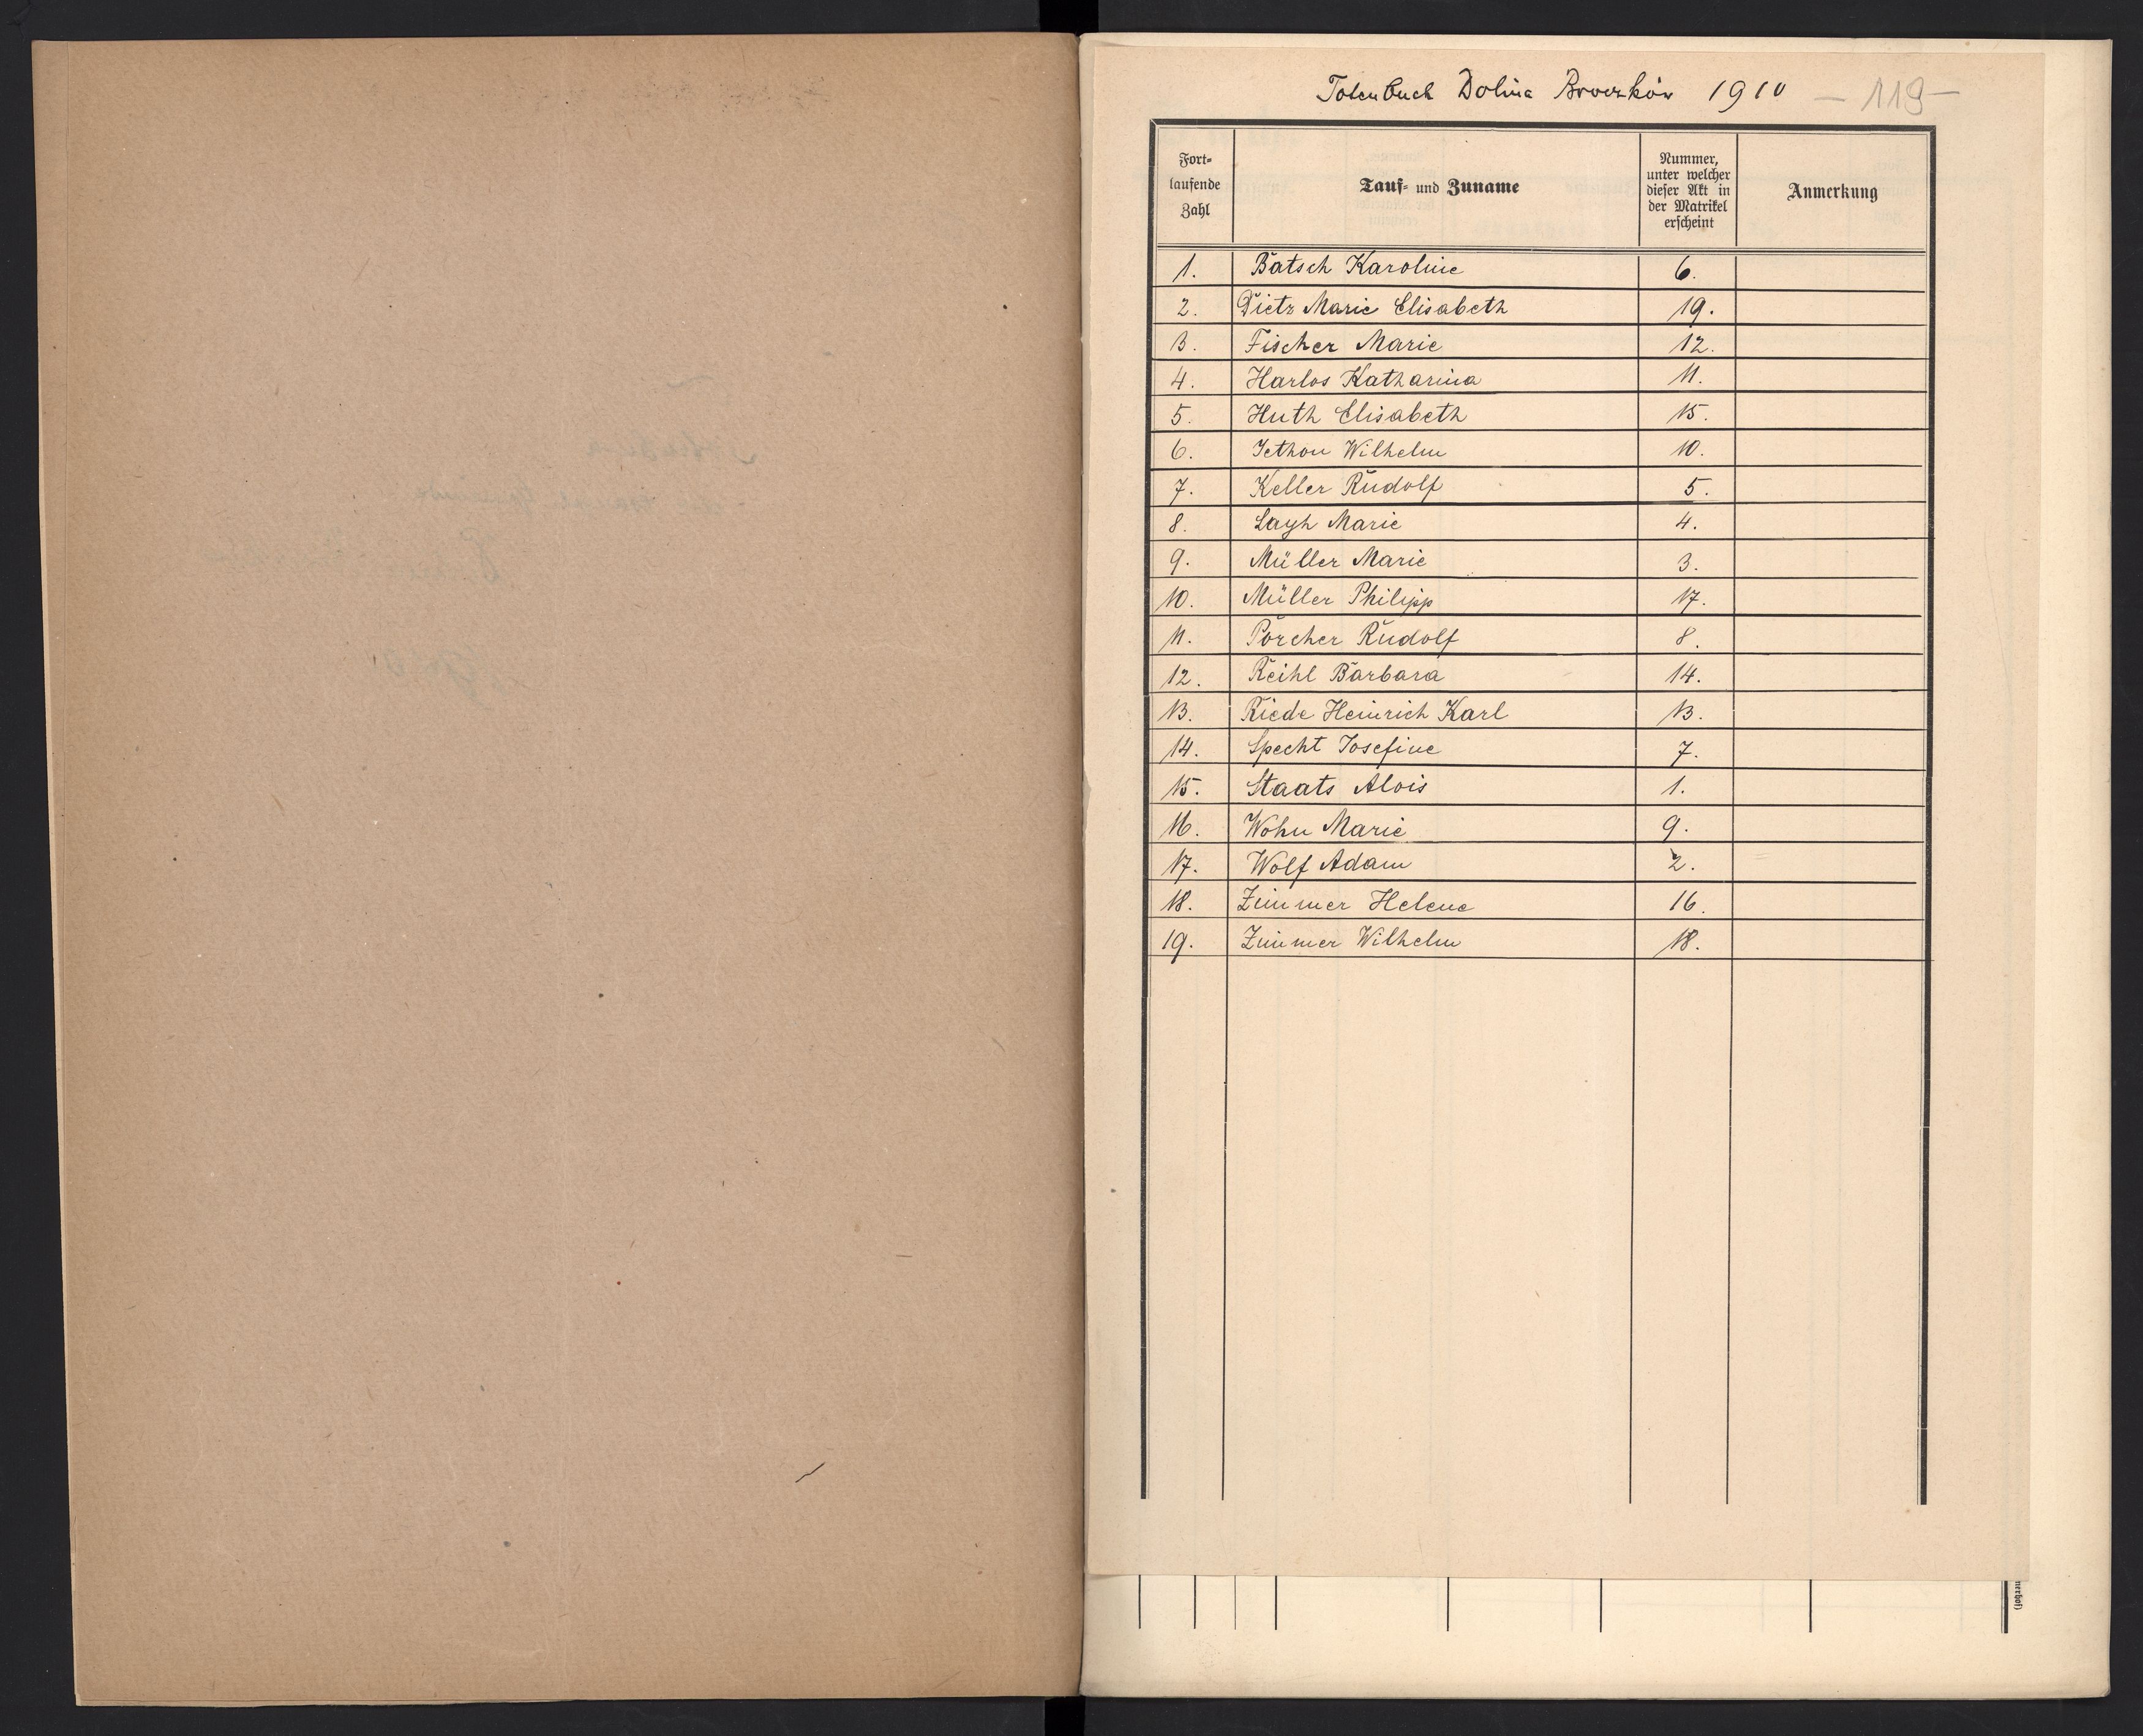 Totenbuch Dolina Broczków 1910 — 119 —
Fort-
laufende
Zahl
Tauf- und Zuname
Nummer,
unter welcher
dieser Akt in
der Matrikel
erscheint
Anmerkung
1. Batsch Karoline 6.
2. Dietz Marie Elisabeth 19.
3. Fischer Marie 12.
4. Harlos Katharina 11.
5. Huth Elisabeth 15.
6. Jethon Wilhelm 10.
7. Keller Rudolf 5.
8. Layh Marie 4.
9. Müller Marie 3.
10. Müller Philipp 17.
11. Porcher Rudolf 8.
12. Reihl Barbara 14.
13. Riede Heinrich Karl 13.
14. Specht Josefine 7.
15. Staats Alois 1.
16. Wohn Marie 9.
17. Wolf Adam 2.
18. Zimmer Helene 16.
19. Zimmer Wilhelm 18.